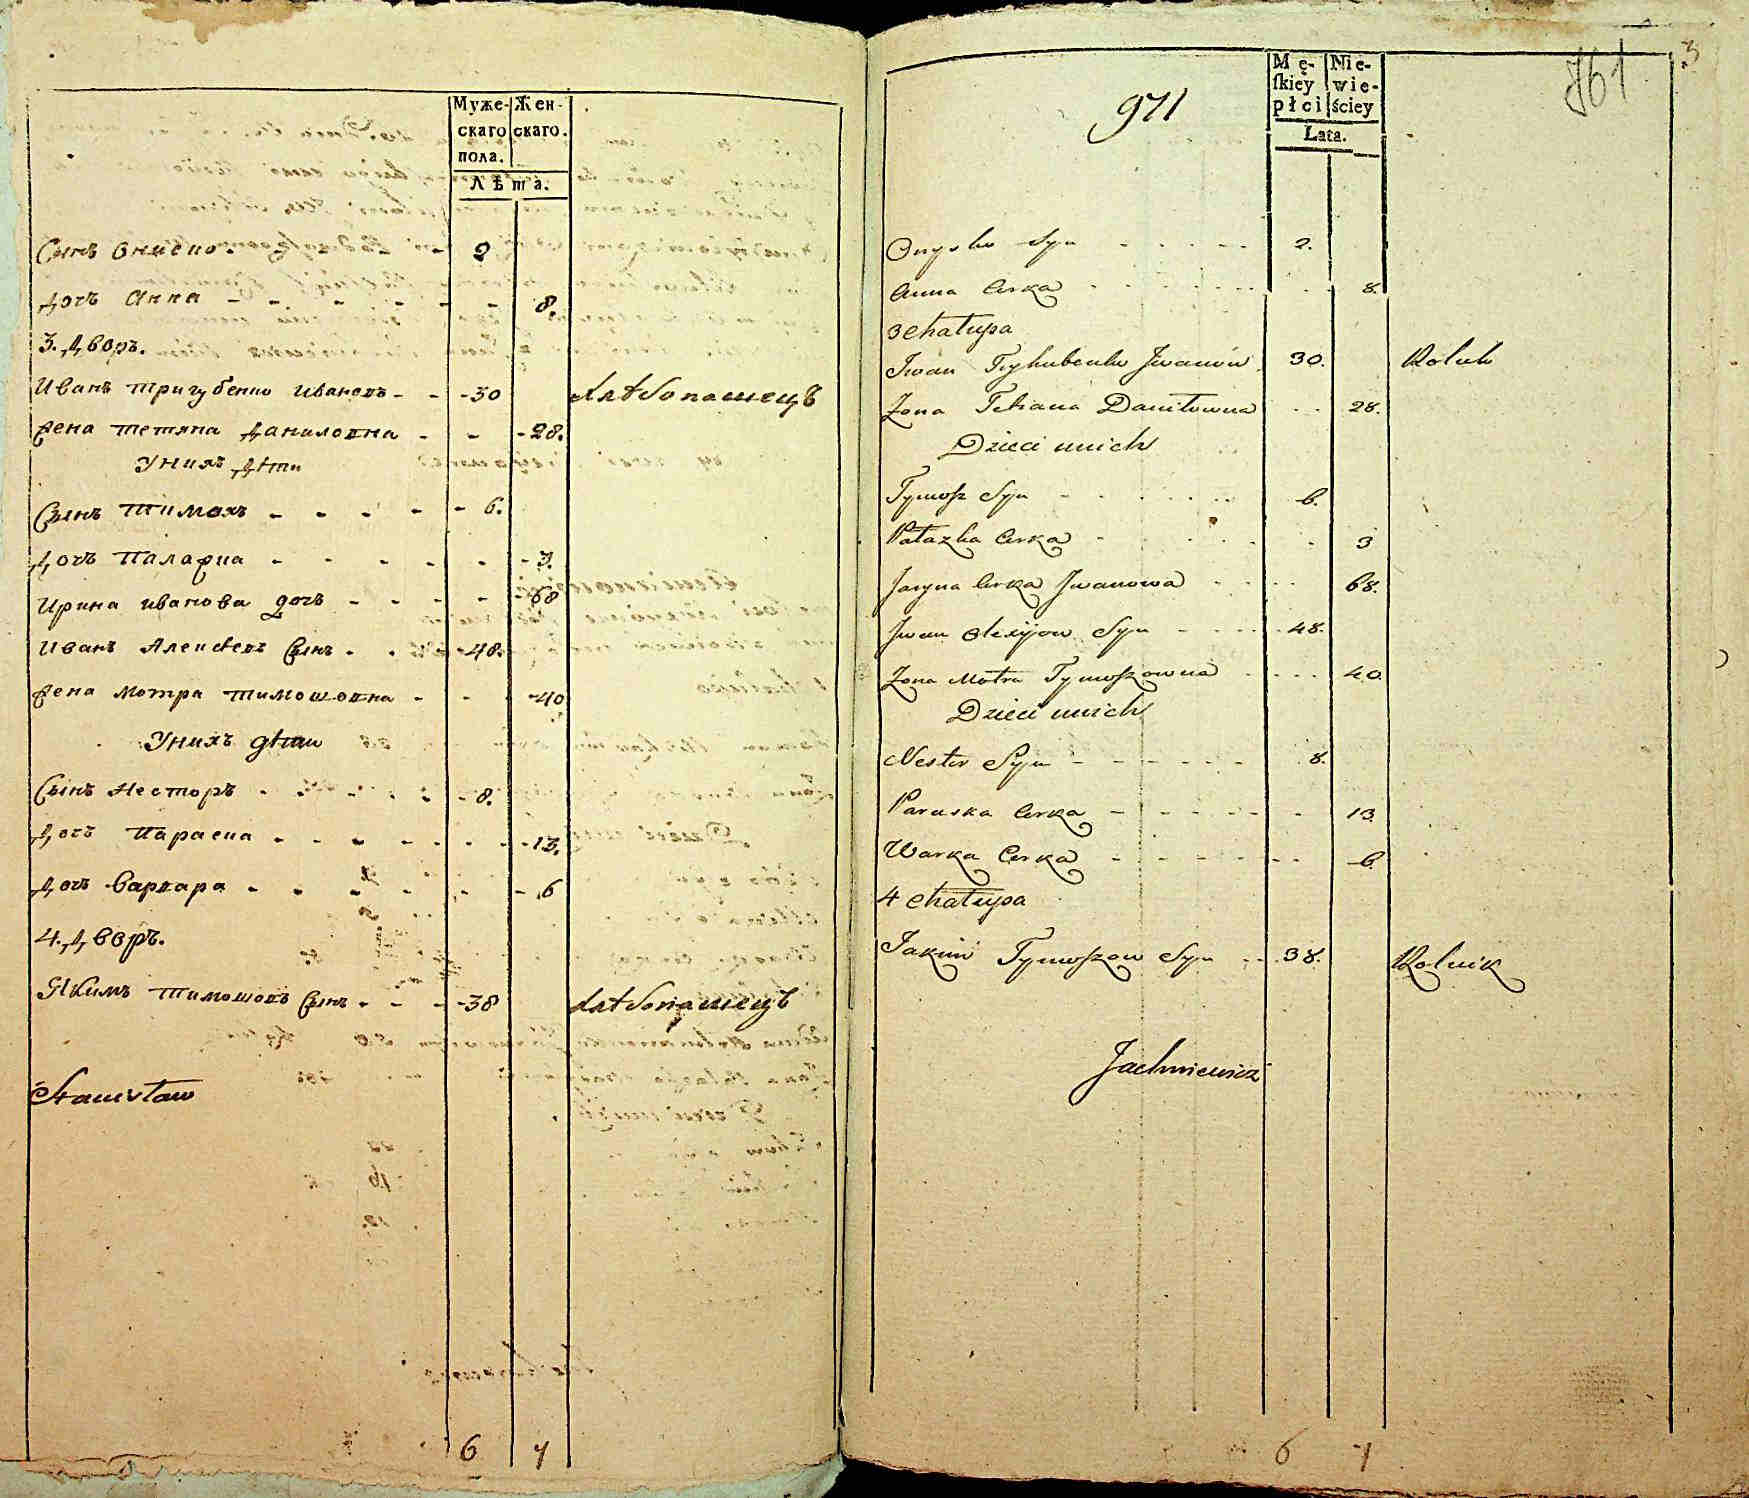 Муже-
скаго
пола.
Жен-
скаго.
Лѣта.
Сынъ Ониско 2
Дочъ Анна 8.
3. Дворъ.
Иванъ Тригубенко Ивановъ 30 Хлѣбопашецъ
Жена Тетяна Даниловна 28.
У нихъ Дѣти
Сынъ Тимохъ 6.
Дочъ Палажка 3.
Ирина Иванова дочъ 68
Иванъ Алексѣевъ Сынъ 48.
Жена Мотра Тимошовна 40
У нихъ дѣти
Сынъ Несторъ 8.
Дочъ Параска 13.
Дочъ Варвара 6
4. Дворъ.
Якимъ Тимошовъ Сынъ 38 Хлѣбопашецъ
Stanisław
6 7
971
761
3
Mę-
ſkiey
płci
Nie-
wie-
ściey
Lata.
Onysko Syn 2.
Anna Corka 8.
3 chałupa
Iwan Tryhubenko Iwanow 30. Rolnik
Zona Tetiana Daniłowna 28.
Dzieci u nich
Tymosz Syn 6.
Pałazka Corka 3
Jaryna Corka Iwanowa 68.
Iwan Olexijow Syn 48.
Zona Motra Tymoszowna 40.
Dzieci u nich
Nester Syn 8.
Paraska Corka 13
Warka Corka 6
4 chałupa
Jakim Tymoszow Syn 38. Rolnik
Jachniewicz
6 7